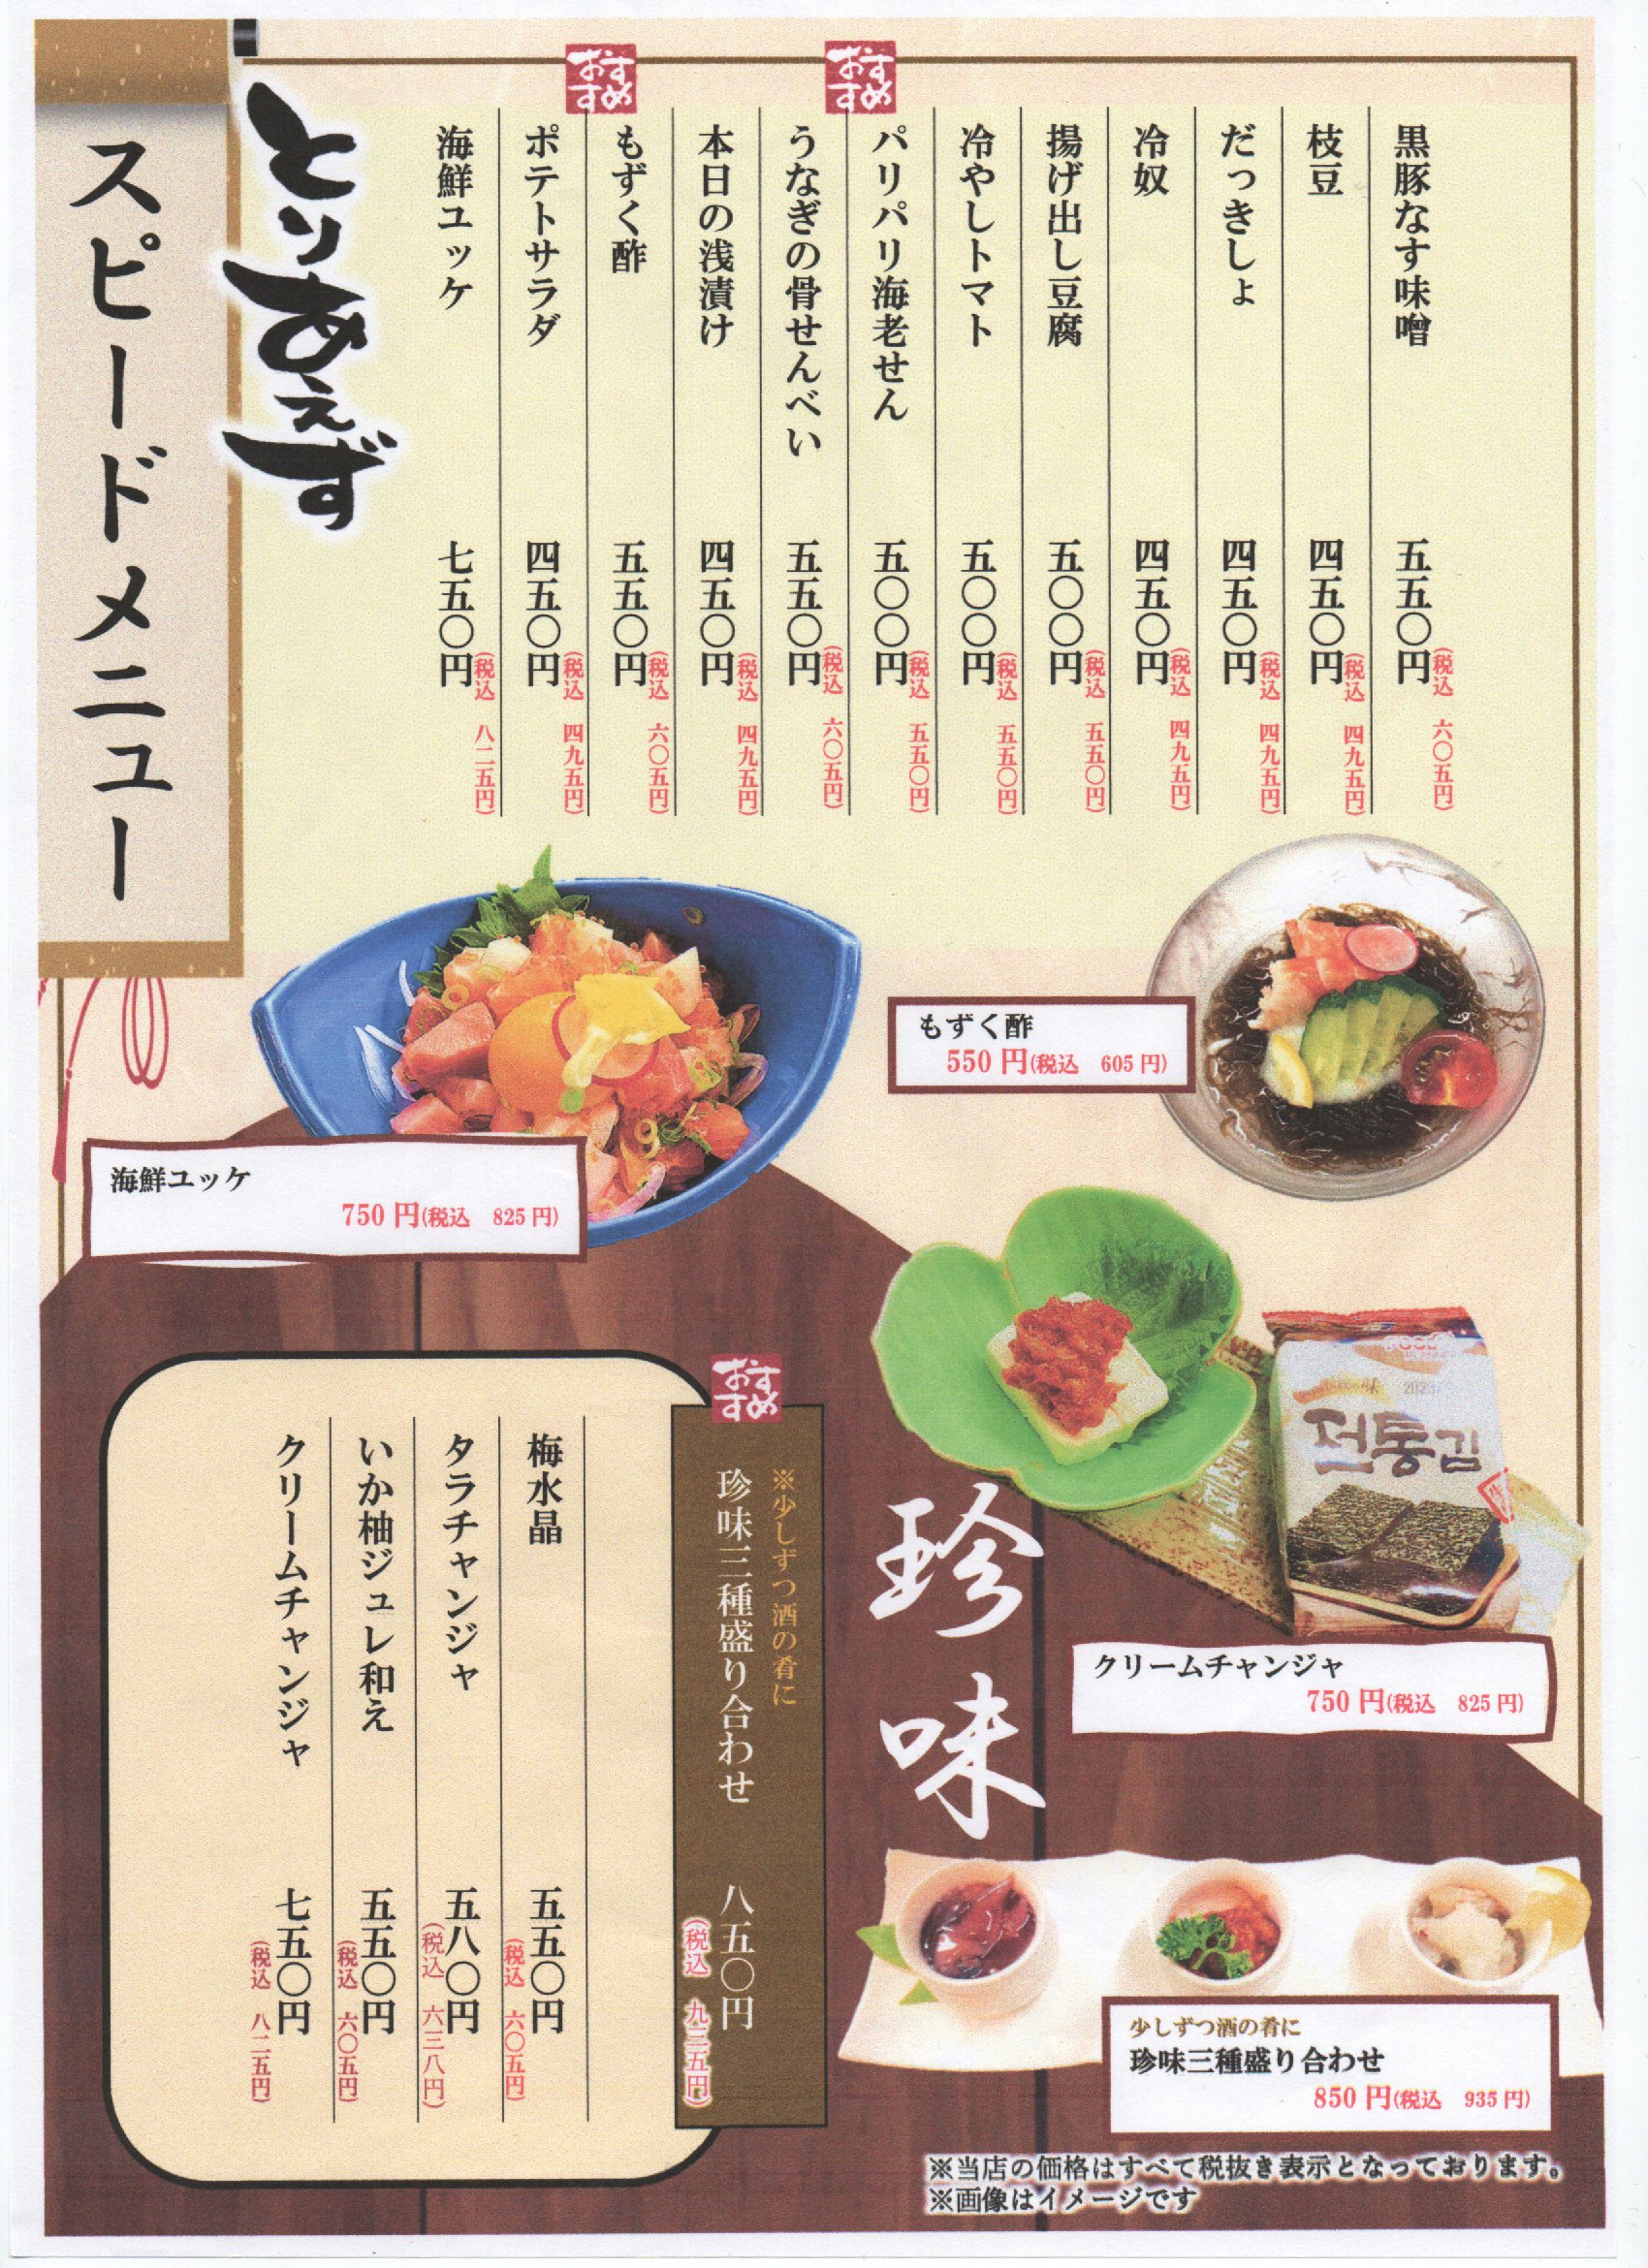 スピードメニュー
とりあえず
黒豚なす味噌 五五〇円(税込 六〇五円)
枝豆 四五〇円(税込 四九五円)
だっきしょ 四五〇円(税込 四九五円)
冷奴 四五〇円(税込 四九五円)
揚げ出し豆腐 五〇〇円(税込 五五〇円)
冷やしトマト 五〇〇円(税込 五五〇円)
おすすめ
パリパリ海老せん 五〇〇円(税込 五五〇円)
うなぎの骨せんべい 五五〇円(税込 六〇五円)
本日の浅漬け 四五〇円(税込 四九五円)
おすすめ
もずく酢 五五〇円(税込 六〇五円)
ポテトサラダ 四五〇円(税込 四九五円)
海鮮ユッケ 七五〇円(税込 八二五円)
もずく酢
550 円(税込 605 円)
海鮮ユッケ
750 円(税込 825 円)
味 2023
전통김
クリームチャンジャ
750 円(税込 825 円)
珍味
おすすめ
※少しずつ酒の肴に
珍味三種盛り合わせ 八五〇円
(税込 九三五円)
梅水晶 五五〇円
(税込 六〇五円)
タラチャンジャ 五八〇円
(税込 六三八円)
いか柚ジュレ和え 五五〇円
(税込 六〇五円)
クリームチャンジャ 七五〇円
(税込 八二五円)
少しずつ酒の肴に
珍味三種盛り合わせ
850 円(税込 935 円)
※当店の価格はすべて税抜き表示となっております。
※画像はイメージです